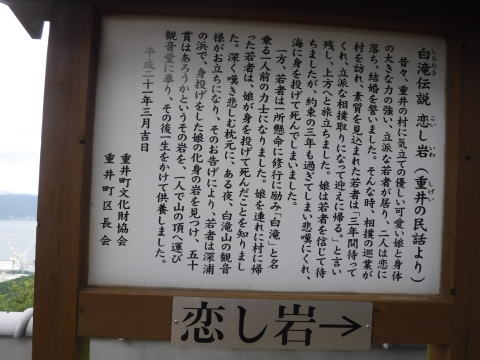 白滝伝説 恋し岩（重井の民話より）
しらたき こい いわ しげい
昔々、重井の村に気立ての優しい可愛い娘と身体
の大きな力の強い、立派な若者が居り、二人は恋に
落ち、結婚を誓いました。そんな時、相撲の巡業が
村を訪れ、素質を見込まれた若者は「三年間待って
くれ、立派な相撲取りになって迎えに帰る。」と言い
残し、上方へと旅立ちました。娘は若者を信じて待
ちましたが、約束の三年も過ぎてしまい悲嘆にくれ、
海に身を投げて死んでしまいました。
一方、若者は一所懸命に修行に励み「白滝」と名
乗る一人前の力士になりました。娘を連れに村に帰
った若者は、娘が身を投げて死んだことを知りまし
た。深く嘆き悲しむ枕元に、ある夜、白滝山の観音
様がお立ちになり、そのお告げにより、若者は深浦
の浜で、身投げをした娘の化身の岩を見つけ、五十
貫はあろうかというその岩を、一人で山の頂へ運び
観音堂に奉り、その後一生をかけて供養しました。
平成二十一年三月吉日
重井町文化財協会
重井町区長会
恋し岩→